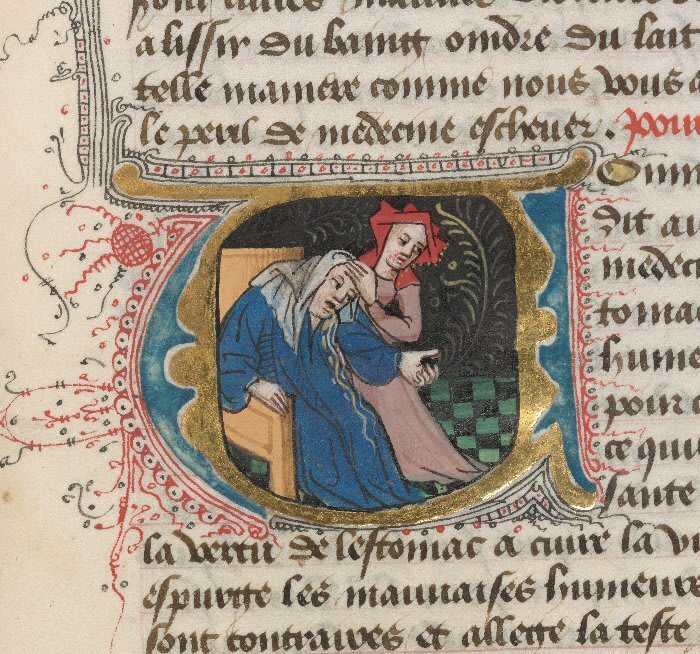 a lissir du baing oindre du lait
telle maniere comme nous vous a
le peril de medecine eschever. Pour
Dit au
medec
tomac
hume
pour
ce qui
sante
la vertu de lestomac a cuire la vi
espurge les mauvaises humeure
sont contraires et allege la teste